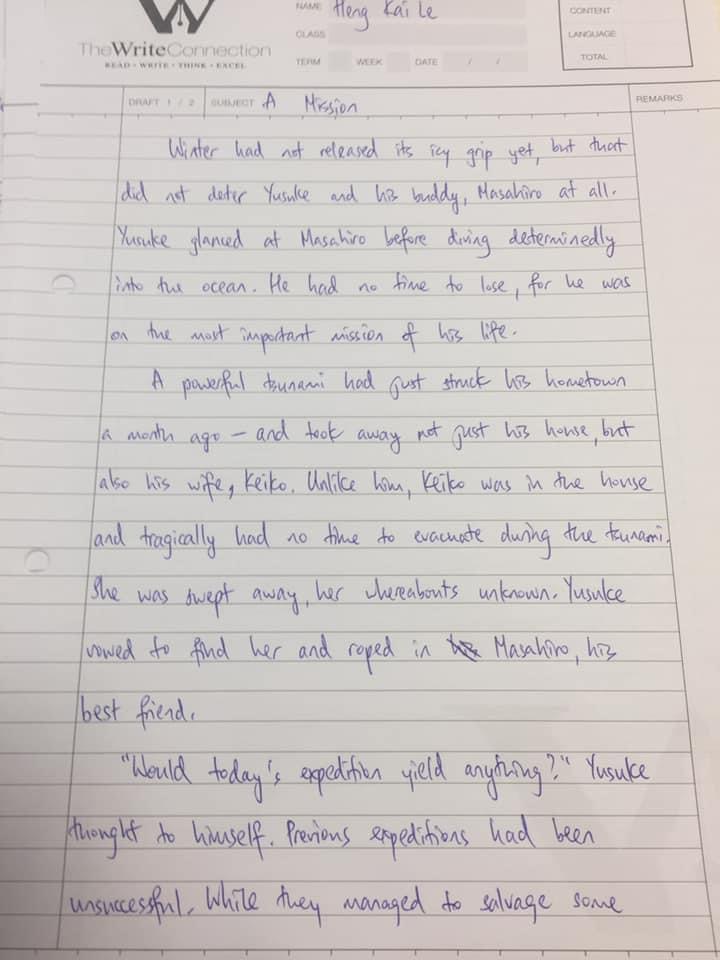 TheWriteConnection
READ • WRITE • THINK • EXCEL
NAME Heng Kai Le
CLASS
TERM WEEK DATE / /
CONTENT
LANGUAGE
TOTAL
DRAFT 1 / 2 SUBJECT A Mission
REMARKS
Winter had not released its icy grip yet, but that
did not deter Yusuke and his buddy, Masahiro at all.
Yusuke glanced at Masahiro before diving determinedly
into the ocean. He had no time to lose, for he was
on the most important mission of his life.
A powerful tsunami had just struck his hometown
a month ago – and took away not just his house, but
also his wife, Keiko. Unlike him, Keiko was in the house
and tragically had no time to evacuate during the tsunami.
She was swept away, her whereabouts unknown. Yusuke
vowed to find her and roped in Masahiro, his
best friend.
"Would today's expedition yield anything?" Yusuke
thought to himself. Previous expeditions had been
unsuccessful. While they managed to salvage some